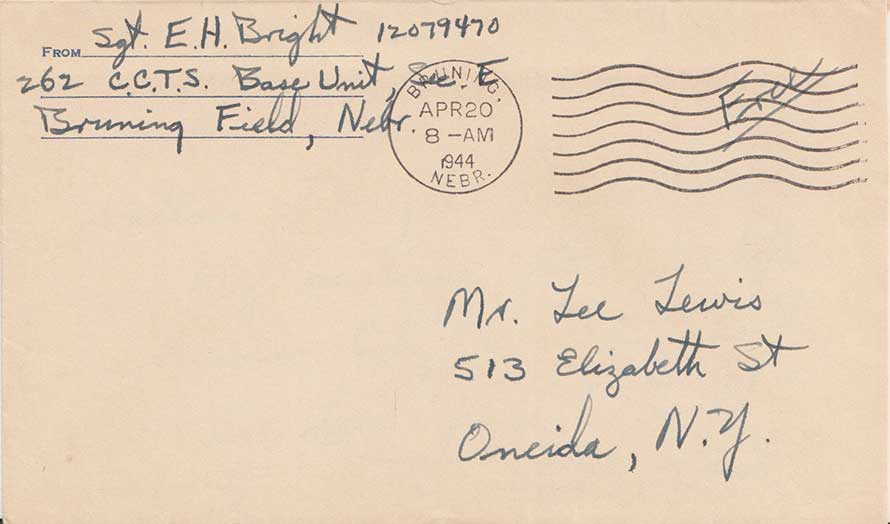 FROM Sgt. E.H. Bright 12079470
262 C.C.T.S. Base Unit, Sec E
Bruning Field, Nebr.
BRUNING.
APR 20
8-AM
1944
NEBR.
Free
Mr. Lee Lewis
513 Elizabeth St
Oneida, N.Y.